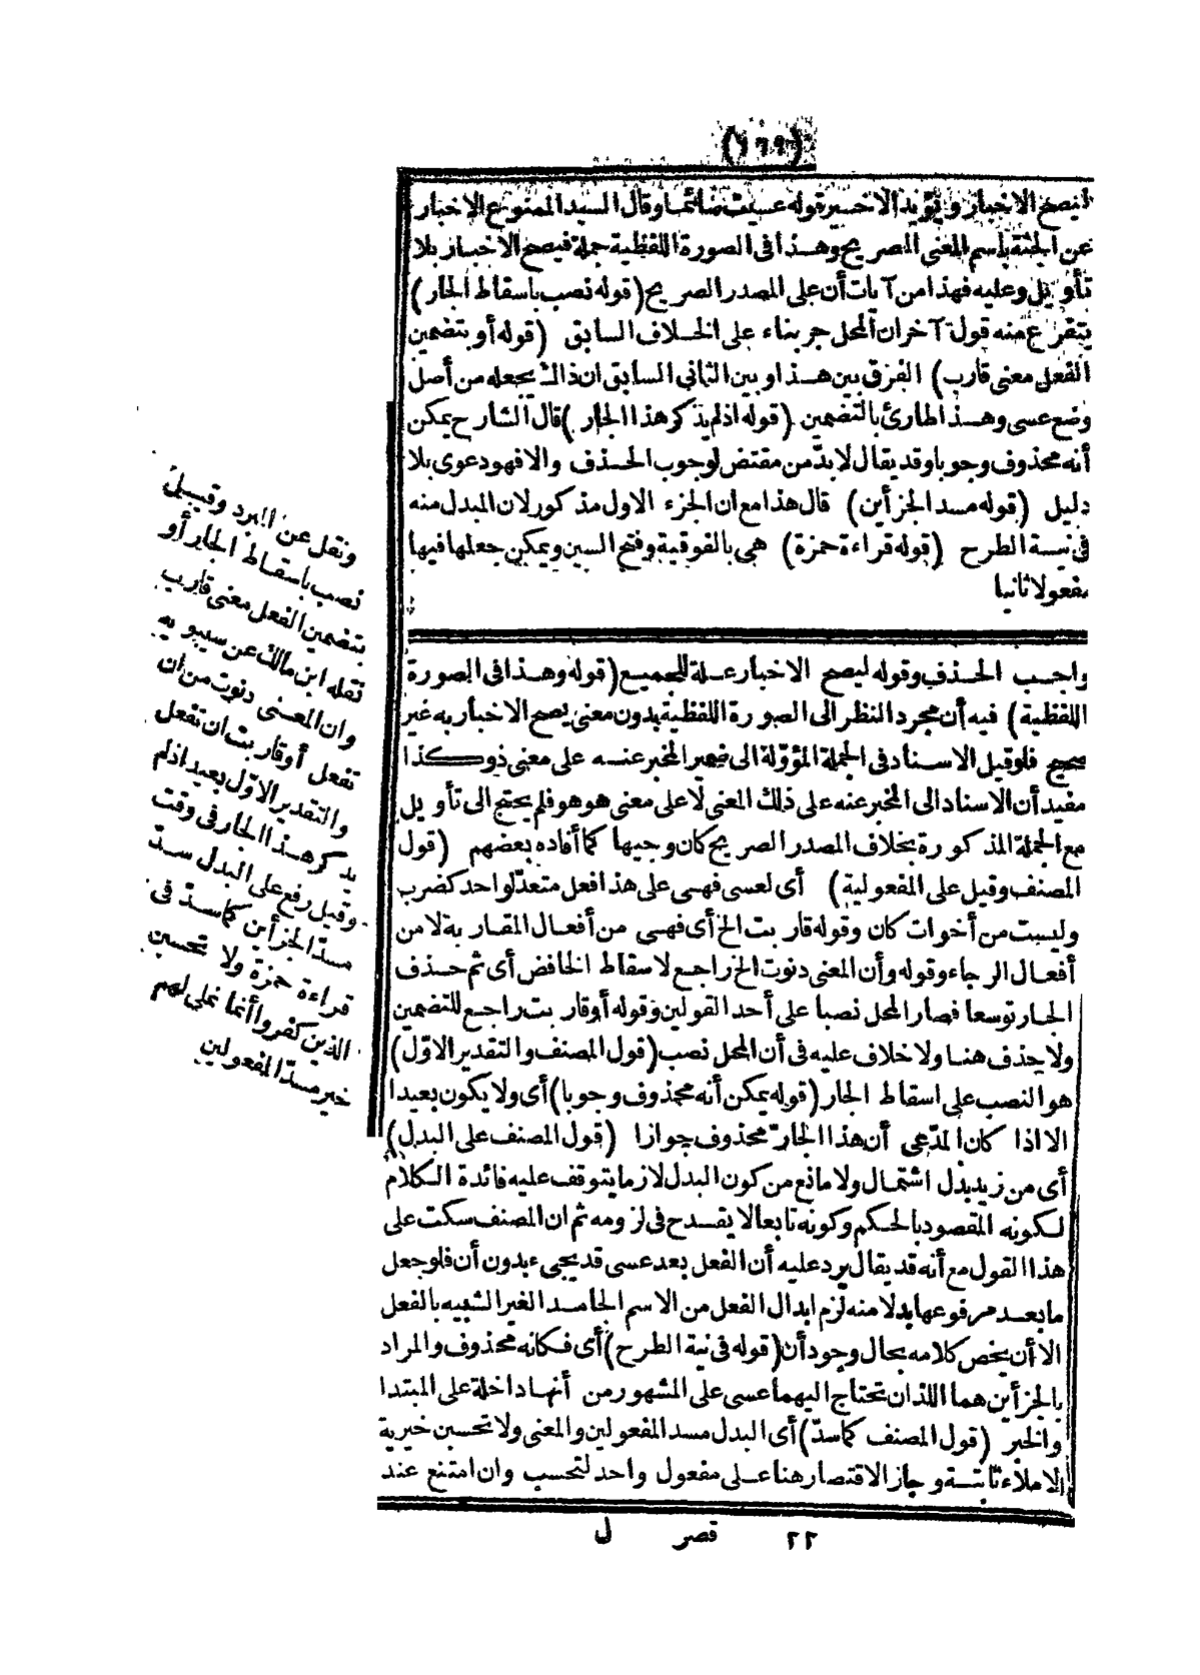 (١٦٩)
ليصح الاخبار ويؤيد الاخير قوله عسيت صائما وقال السيد الممنوع الاخبار
عن الجثة باسم المعنى الصريح وهذا فى الصورة اللفظية جملة فيصح الاخبار بلا
تأويل وعليه فهذا من آيات أن على المصدر الصريح (قوله نصب باسقاط الجار)
يتفرع منه قول آخر ان المحل جر بناء على الخلاف السابق (قوله أو بتضمين
الفعل معنى قارب) الفرق بين هذا وبين الثانى السابق ان ذاك يجعله من أصل
وضع عسى وهذا طارئ بالتضمين (قوله اذ لم يذكر هذا الجار) قال الشارح يمكن
أنه محذوف وجوبا وقد يقال لا بدّ من مقتض لوجوب الحذف والا فهو دعوى بلا
دليل (قوله مسد الجزأين) قال هذا مع ان الجزء الاول مذكور لان المبدل منه
فى نية الطرح (قوله قراءة حمزة) هى بالفوقية وفتح السين ويمكن جعلها فيها
مفعولا ثانيا
واجب الحذف وقوله ليصح الاخبار علة للجميع (قوله وهذا فى الصورة
اللفظية) فيه أن مجرد النظر الى الصورة اللفظية بدون معنى يصح الاخبار به غير
صحيح فلو قيل الاسناد فى الجملة المؤوّلة الى ضمير المخبر عنه على معنى ذو كذا
مفيد أن الاسناد الى المخبر عنه على ذلك المعنى لا على معنى هو هو فلم يحتج الى تأويل
مع الجملة المذكورة بخلاف المصدر الصريح كان وجيها كما أفاده بعضهم (قول
المصنف وقيل على المفعولية) أى لعسى فهى على هذا فعل متعدّ لواحد كضرب
وليست من أخوات كان وقوله قاربت الخ أى فهى من أفعال المقاربة لا من
أفعال الرجاء وقوله وأن المعنى دنوت الخ راجع لاسقاط الخافض أى ثم حذف
الجار توسعا فصار المحل نصبا على أحد القولين وقوله أو قاربت راجع للتضمين
ولا حذف هنا ولا خلاف عليه فى أن المحل نصب (قول المصنف والتقدير الاوّل)
هو النصب على اسقاط الجار (قوله يمكن أنه محذوف وجوبا) أى ولا يكون بعيدا
الا اذا كان المدّعى أن هذا الجارّ محذوف جوازا (قول المصنف على البدل)
أى من زيد بدل اشتمال ولا مانع من كون البدل لازما يتوقف عليه فائدة الكلام
لكونه المقصود بالحكم وكونه تابعا لا يقدح فى لزومه ثم ان المصنف سكت على
هذا القول مع أنه قد يقال يرد عليه أن الفعل بعد عسى قد يجىء بدون أن فلو جعل
ما بعد مرفوعها بدلا منه لزم ابدال الفعل من الاسم الجامد الغير الشبيه بالفعل
الا أن يخص كلامه بحال وجود أن (قوله فى نية الطرح) أى فكانه محذوف والمراد
بالجزأين هما اللذان تحتاج اليهما عسى على المشهور من أنها داخلة على المبتدا
والخبر (قول المصنف كما سدّ) أى البدل مسد المفعولين والمعنى ولا تحسبن خيرية
الاملاء ثابتة وجاز الاقتصار هنا على مفعول واحد لتحسب وان امتنع عند
٢٢ قصر ل
ونقل عن المبرد وقيل
نصب باسقاط الجار أو
بتضمين الفعل معنى قارب
نقله ابن مالك عن سيبويه
وان المعنى دنوت من ان
تفعل أو قاربت ان تفعل
والتقدير الاوّل بعيد اذ لم
يذكر هذا الجار فى وقت
وقيل رفع على البدل سدّ
مسدّ الجزأين كما سدّ فى
قراءة حمزة ولا تحسبن
الذين كفروا أنما نملى لهم
خير مسدّ المفعولين